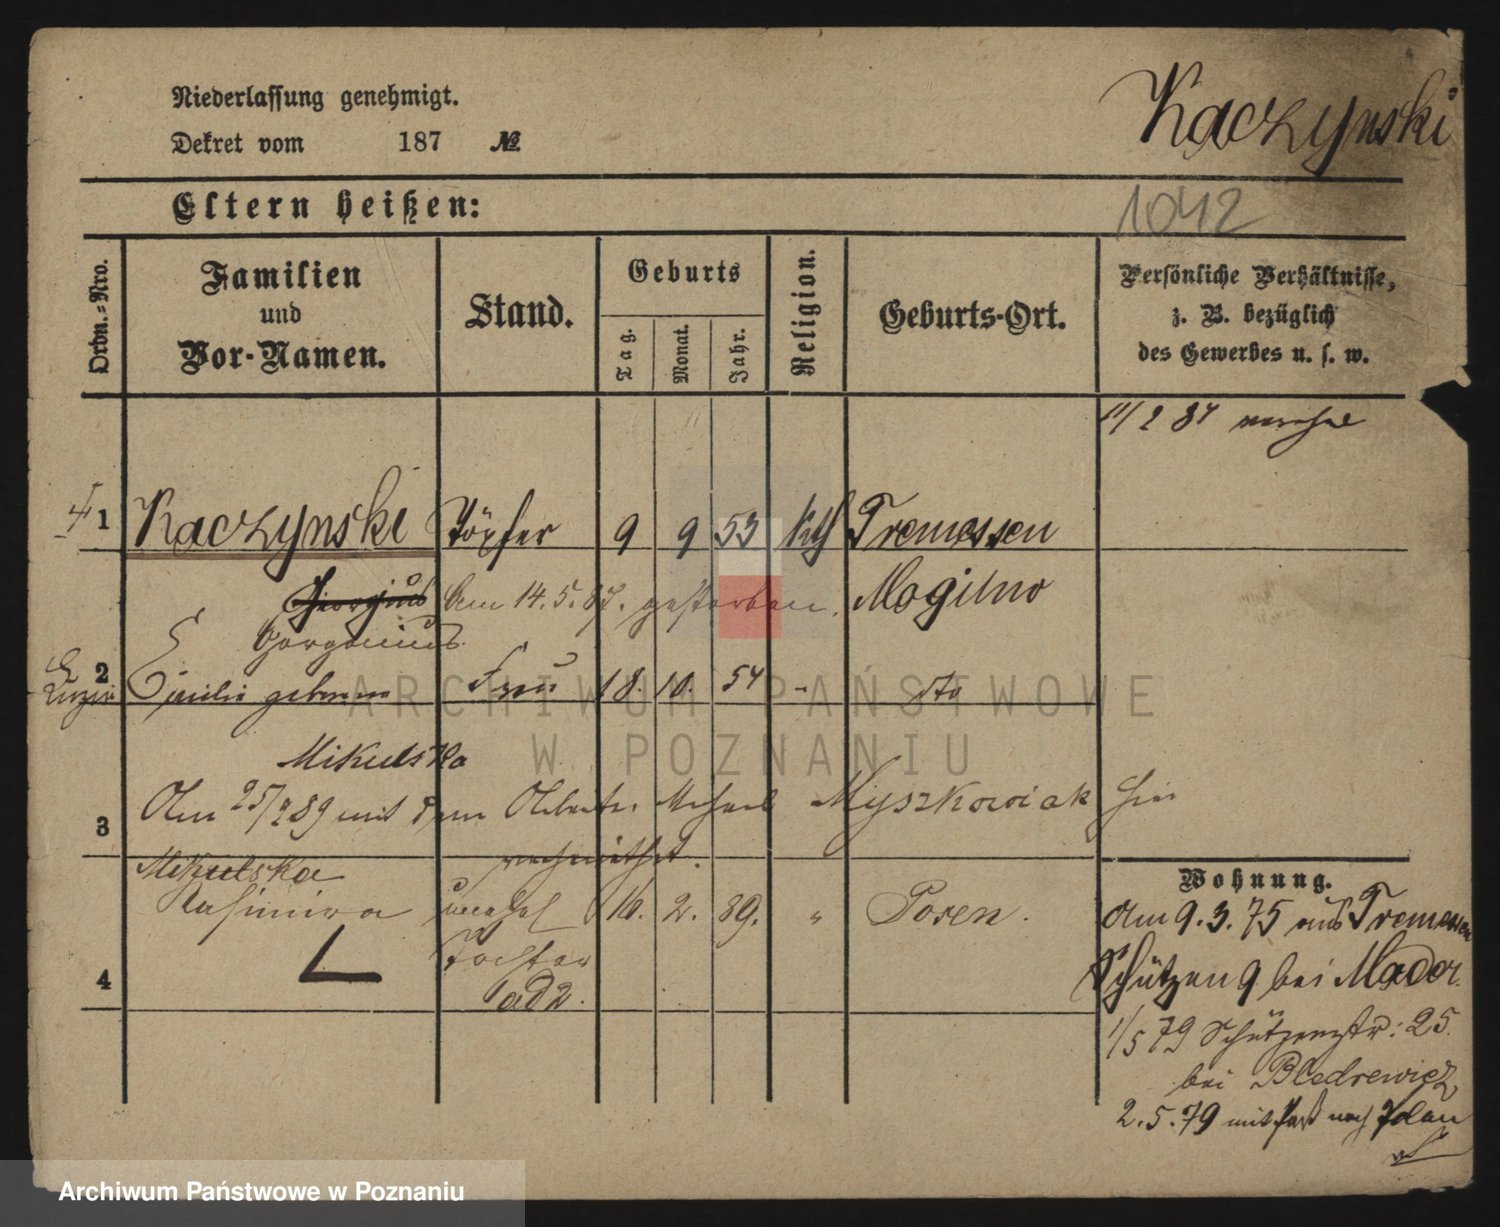 Niederlassung genehmigt.
Dekret vom 187 №
Kaczynski
1042
Eltern heißen:
Ordn.-Nro.
Familien und Vor-Namen.
Stand.
Geburts
Tag.
Monat.
Jahr.
Religion.
Geburts-Ort.
Persönliche Verhältnisse, z. B. bezüglich des Gewerbes u. s. w.
11/2 87
1 Kaczynski Töpfer 9 9 53 kth Tremessen
Georgius Am 14. 5. 87. gestorben. Mogilno
Gorgonius
2 geborene Frau 18. 10. 54 - dto
Mikulska
3 Am 25/ 89 mit dem Arbeiter Michael Myszkowiak hier
verheirathet.
Mikulska
Kasimira unehel 16. 2. 89. " Posen.
Tochter
4 ad 2.
Wohnung.
Am 9. 3. 75 aus Tremessen
Schützen 9 bei Mador.
1/5 79 Schützenstr: 25.
bei Bledrewicz
2. 5. 79 mit Paß nach
ARCHIWUM PAŃSTWOWE
W POZNANIU
Archiwum Państwowe w Poznaniu